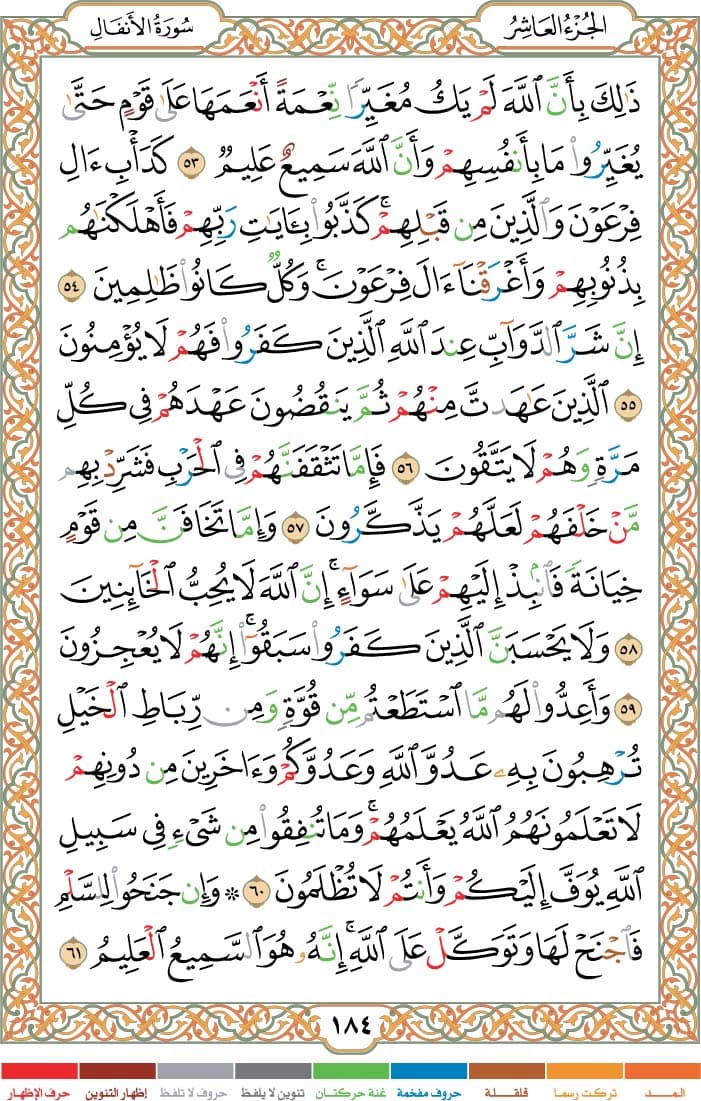 الجُزْءُ العَاشِرُ
سُورَةُ الأَنفَالِ
ذَٰلِكَ بِأَنَّ ٱللَّهَ لَمْ يَكُ مُغَيِّرًا نِّعْمَةً أَنْعَمَهَا عَلَىٰ قَوْمٍ حَتَّىٰ
يُغَيِّرُوا۟ مَا بِأَنفُسِهِمْ وَأَنَّ ٱللَّهَ سَمِيعٌ عَلِيمٌ ٥٣ كَدَأْبِ ءَالِ
فِرْعَوْنَ وَٱلَّذِينَ مِن قَبْلِهِمْ ۚ كَذَّبُوا۟ بِـَٔايَـٰتِ رَبِّهِمْ فَأَهْلَكْنَـٰهُم
بِذُنُوبِهِمْ وَأَغْرَقْنَآ ءَالَ فِرْعَوْنَ ۚ وَكُلٌّ كَانُوا۟ ظَـٰلِمِينَ ٥٤
إِنَّ شَرَّ ٱلدَّوَآبِّ عِندَ ٱللَّهِ ٱلَّذِينَ كَفَرُوا۟ فَهُمْ لَا يُؤْمِنُونَ
٥٥ ٱلَّذِينَ عَـٰهَدتَّ مِنْهُمْ ثُمَّ يَنقُضُونَ عَهْدَهُمْ فِى كُلِّ
مَرَّةٍ وَهُمْ لَا يَتَّقُونَ ٥٦ فَإِمَّا تَثْقَفَنَّهُمْ فِى ٱلْحَرْبِ فَشَرِّدْ بِهِم
مَّنْ خَلْفَهُمْ لَعَلَّهُمْ يَذَّكَّرُونَ ٥٧ وَإِمَّا تَخَافَنَّ مِن قَوْمٍ
خِيَانَةً فَٱنۢبِذْ إِلَيْهِمْ عَلَىٰ سَوَآءٍ ۚ إِنَّ ٱللَّهَ لَا يُحِبُّ ٱلْخَآئِنِينَ
٥٨ وَلَا يَحْسَبَنَّ ٱلَّذِينَ كَفَرُوا۟ سَبَقُوٓا۟ ۚ إِنَّهُمْ لَا يُعْجِزُونَ
٥٩ وَأَعِدُّوا۟ لَهُم مَّا ٱسْتَطَعْتُم مِّن قُوَّةٍ وَمِن رِّبَاطِ ٱلْخَيْلِ
تُرْهِبُونَ بِهِۦ عَدُوَّ ٱللَّهِ وَعَدُوَّكُمْ وَءَاخَرِينَ مِن دُونِهِمْ
لَا تَعْلَمُونَهُمُ ٱللَّهُ يَعْلَمُهُمْ ۚ وَمَا تُنفِقُوا۟ مِن شَىْءٍ فِى سَبِيلِ
ٱللَّهِ يُوَفَّ إِلَيْكُمْ وَأَنتُمْ لَا تُظْلَمُونَ ٦٠ ۞ وَإِن جَنَحُوا۟ لِلسَّلْمِ
فَٱجْنَحْ لَهَا وَتَوَكَّلْ عَلَى ٱللَّهِ ۚ إِنَّهُۥ هُوَ ٱلسَّمِيعُ ٱلْعَلِيمُ ٦١
١٨٤
المــــد
تركت رسما
قلقــلة
حروف مفخمة
غنة حركتان
تنوين لا يلفظ
حروف لا تلفظ
إظهار التنوين
حرف الإظهار